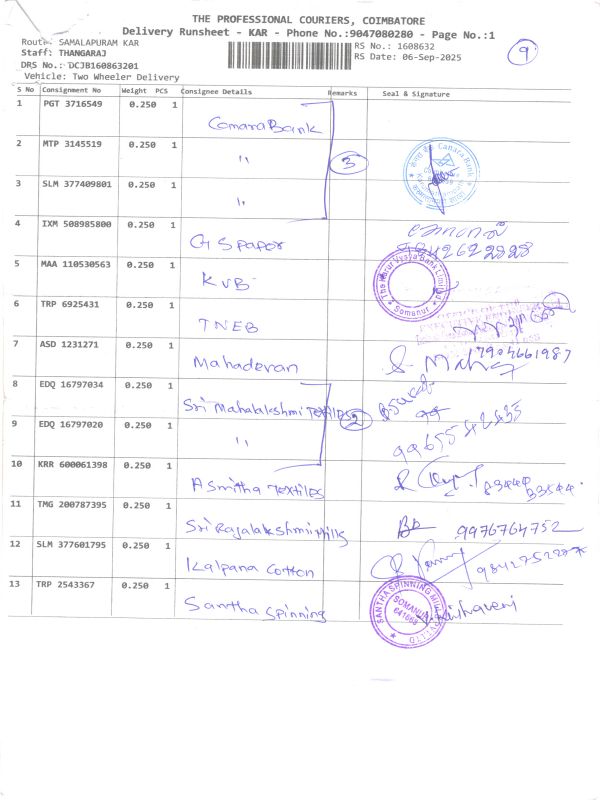 THE PROFESSIONAL COURIERS, COIMBATORE
Delivery Runsheet - KAR - Phone No.:9047080280 - Page No.:1
Route: SAMALAPURAM KAR
RS No.: 1608632
9
Staff: THANGARAJ
RS Date: 06-Sep-2025
DRS No.: DCJB160863201
Vehicle: Two Wheeler Delivery
S No Consignment No Weight PCS Consignee Details Remarks Seal & Signature
1 PGT 3716549 0.250 1 Canara Bank
2 MTP 3145519 0.250 1 " 3 Canara Bank
3 SLM 377409801 0.250 1 "
4 IXM 508985800 0.250 1 G S Paper 9842622228
5 MAA 110530563 0.250 1 KVB The Karur Vysya Bank Limited Somanur
6 TRP 6925431 0.250 1 TNEB
7 ASD 1231271 0.250 1 Mahadevan 7904661987
8 EDQ 16797034 0.250 1 Sri Mahalakshmi Textiles 2
9 EDQ 16797020 0.250 1 "
10 KRR 600061398 0.250 1 Asmitha Textiles
11 TMG 200787395 0.250 1 Sri Rajalakshmi Mills 9976764752
12 SLM 377601795 0.250 1 Kalpana Cotton
13 TRP 2543367 0.250 1 Santha Spinning SANTHA SPINNING MILLS PVT LTD SOMANUR 641668